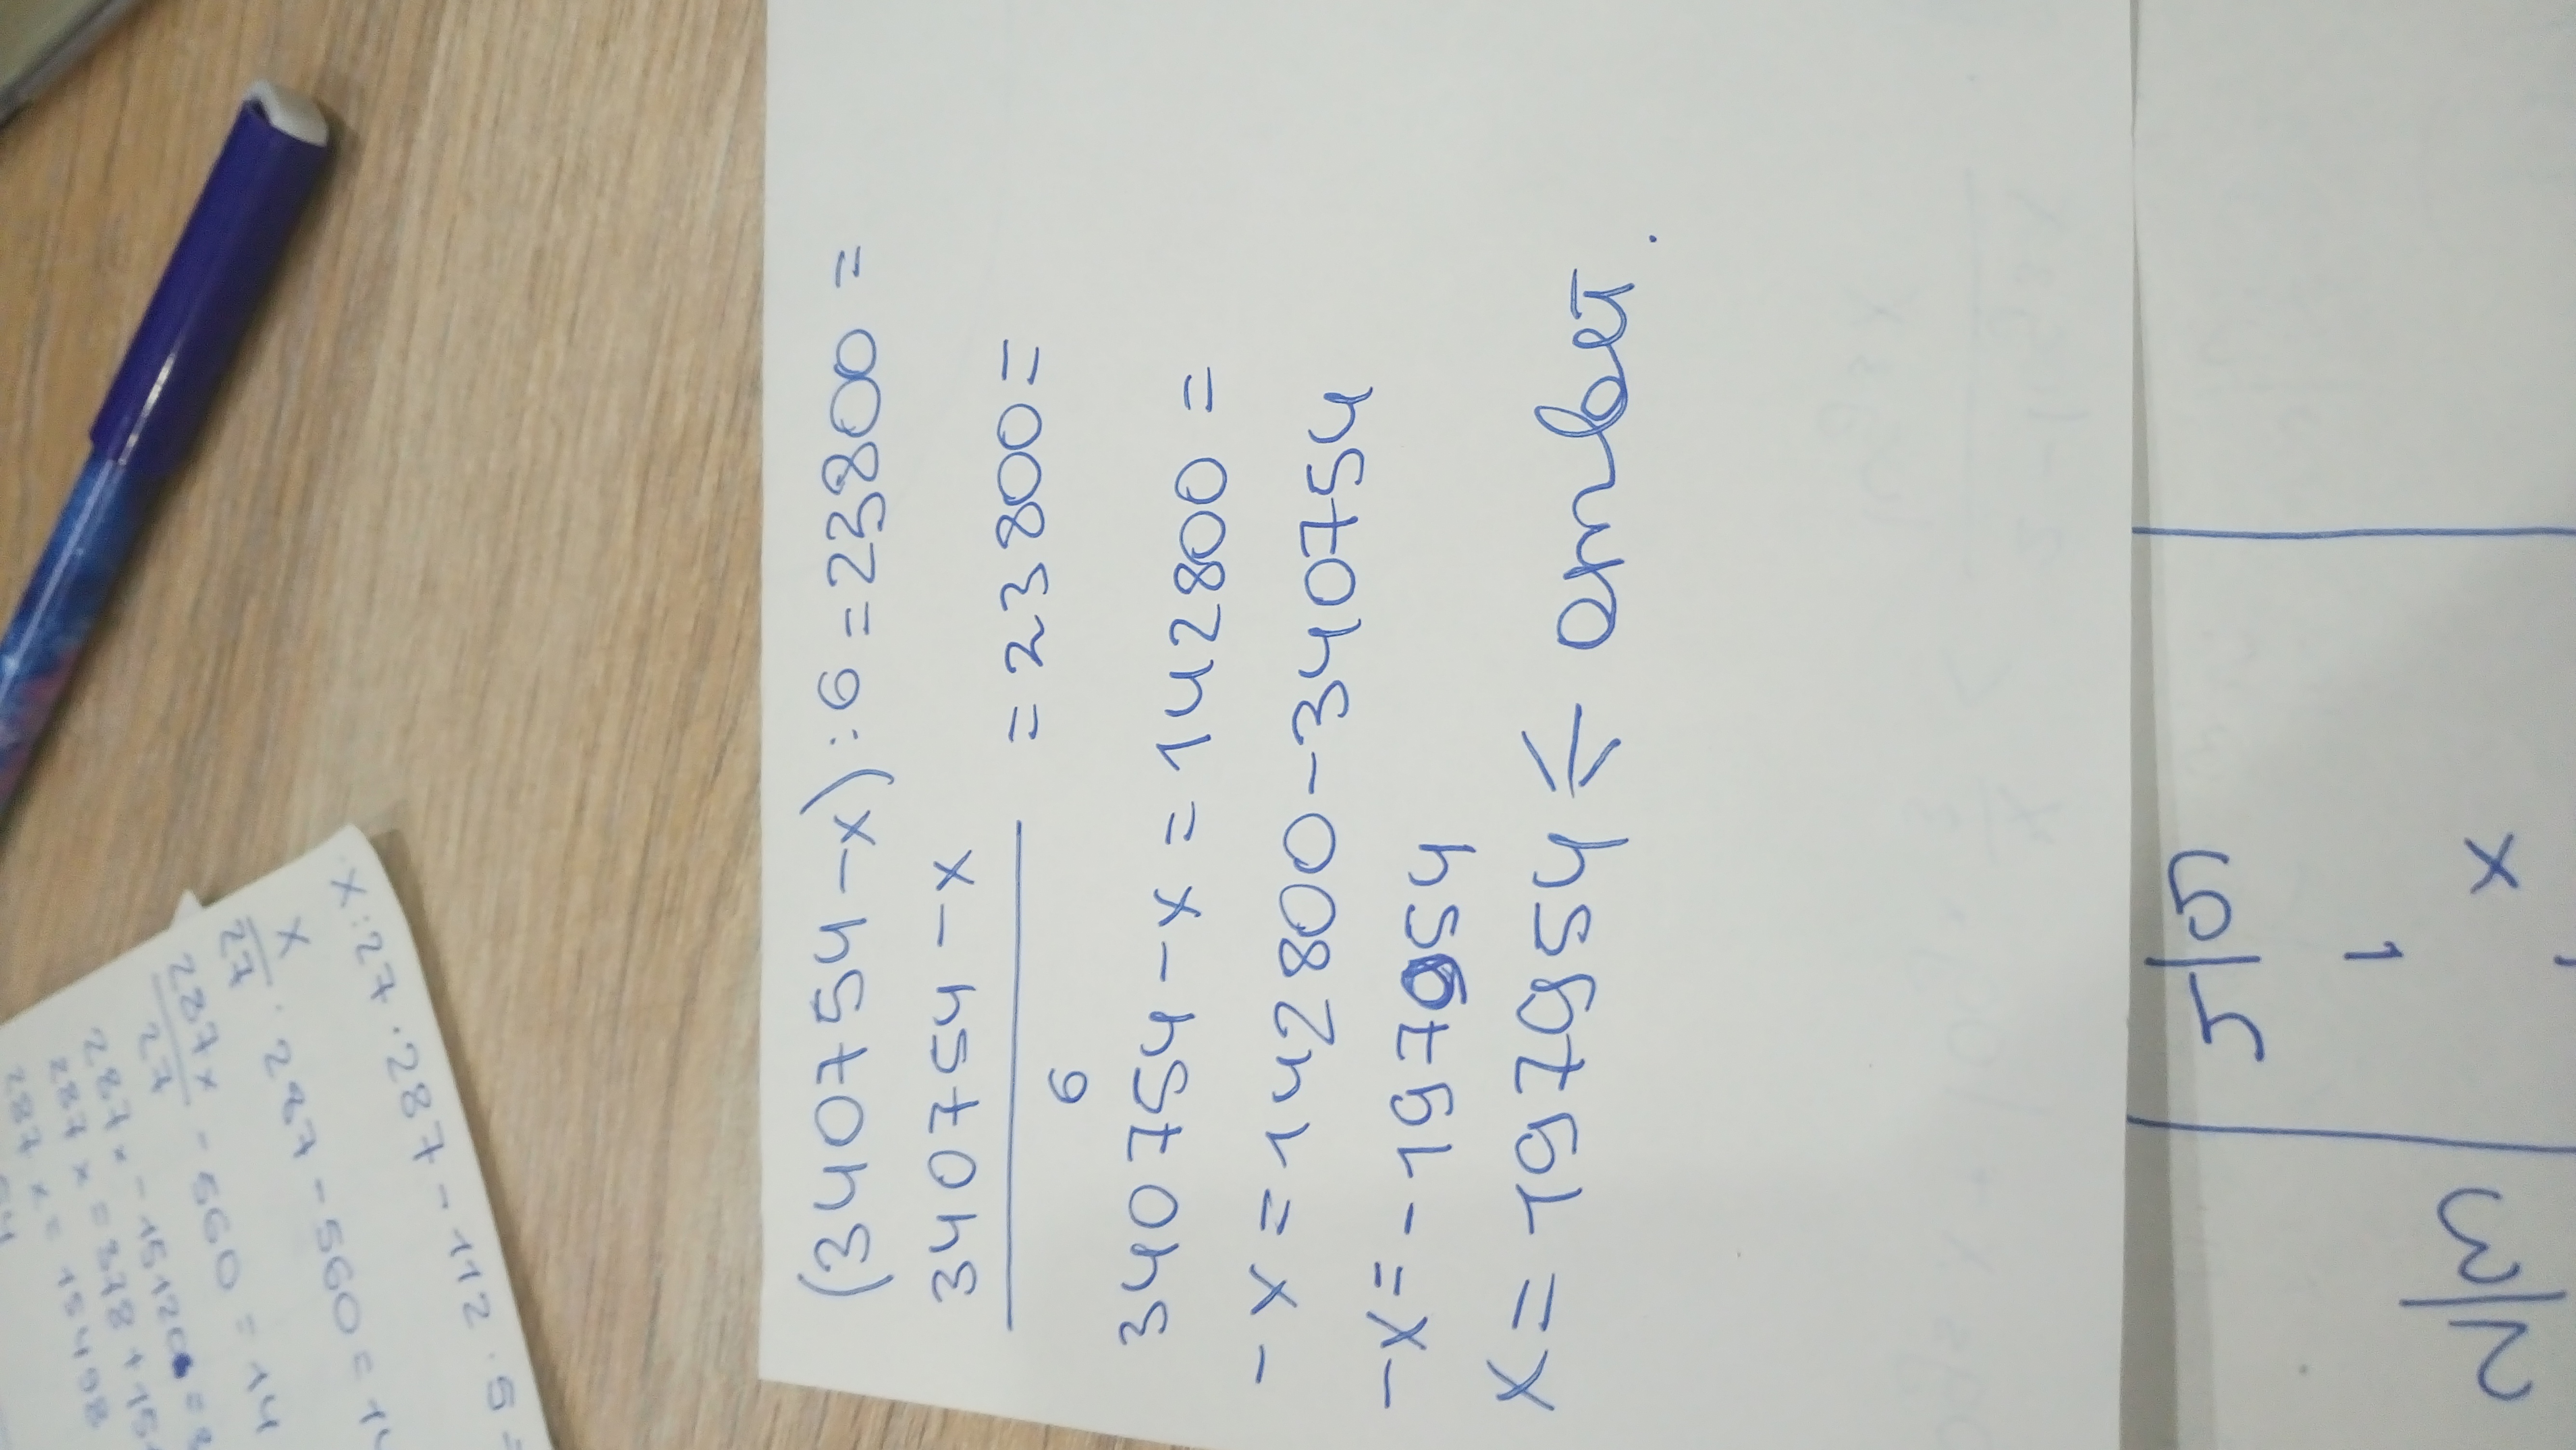 (340754-x):6=23800=
340754-x
= 23800=
6
340754-x=142800=
-x=142800-340754
-x=-197954
x=197954 ← ответ.
x:27·287-112·5=
x
27
·287-560=14
287x
27
-560=14
287x-15120=3
287x=378+151
287x=15498
5|5
1
x
2|3